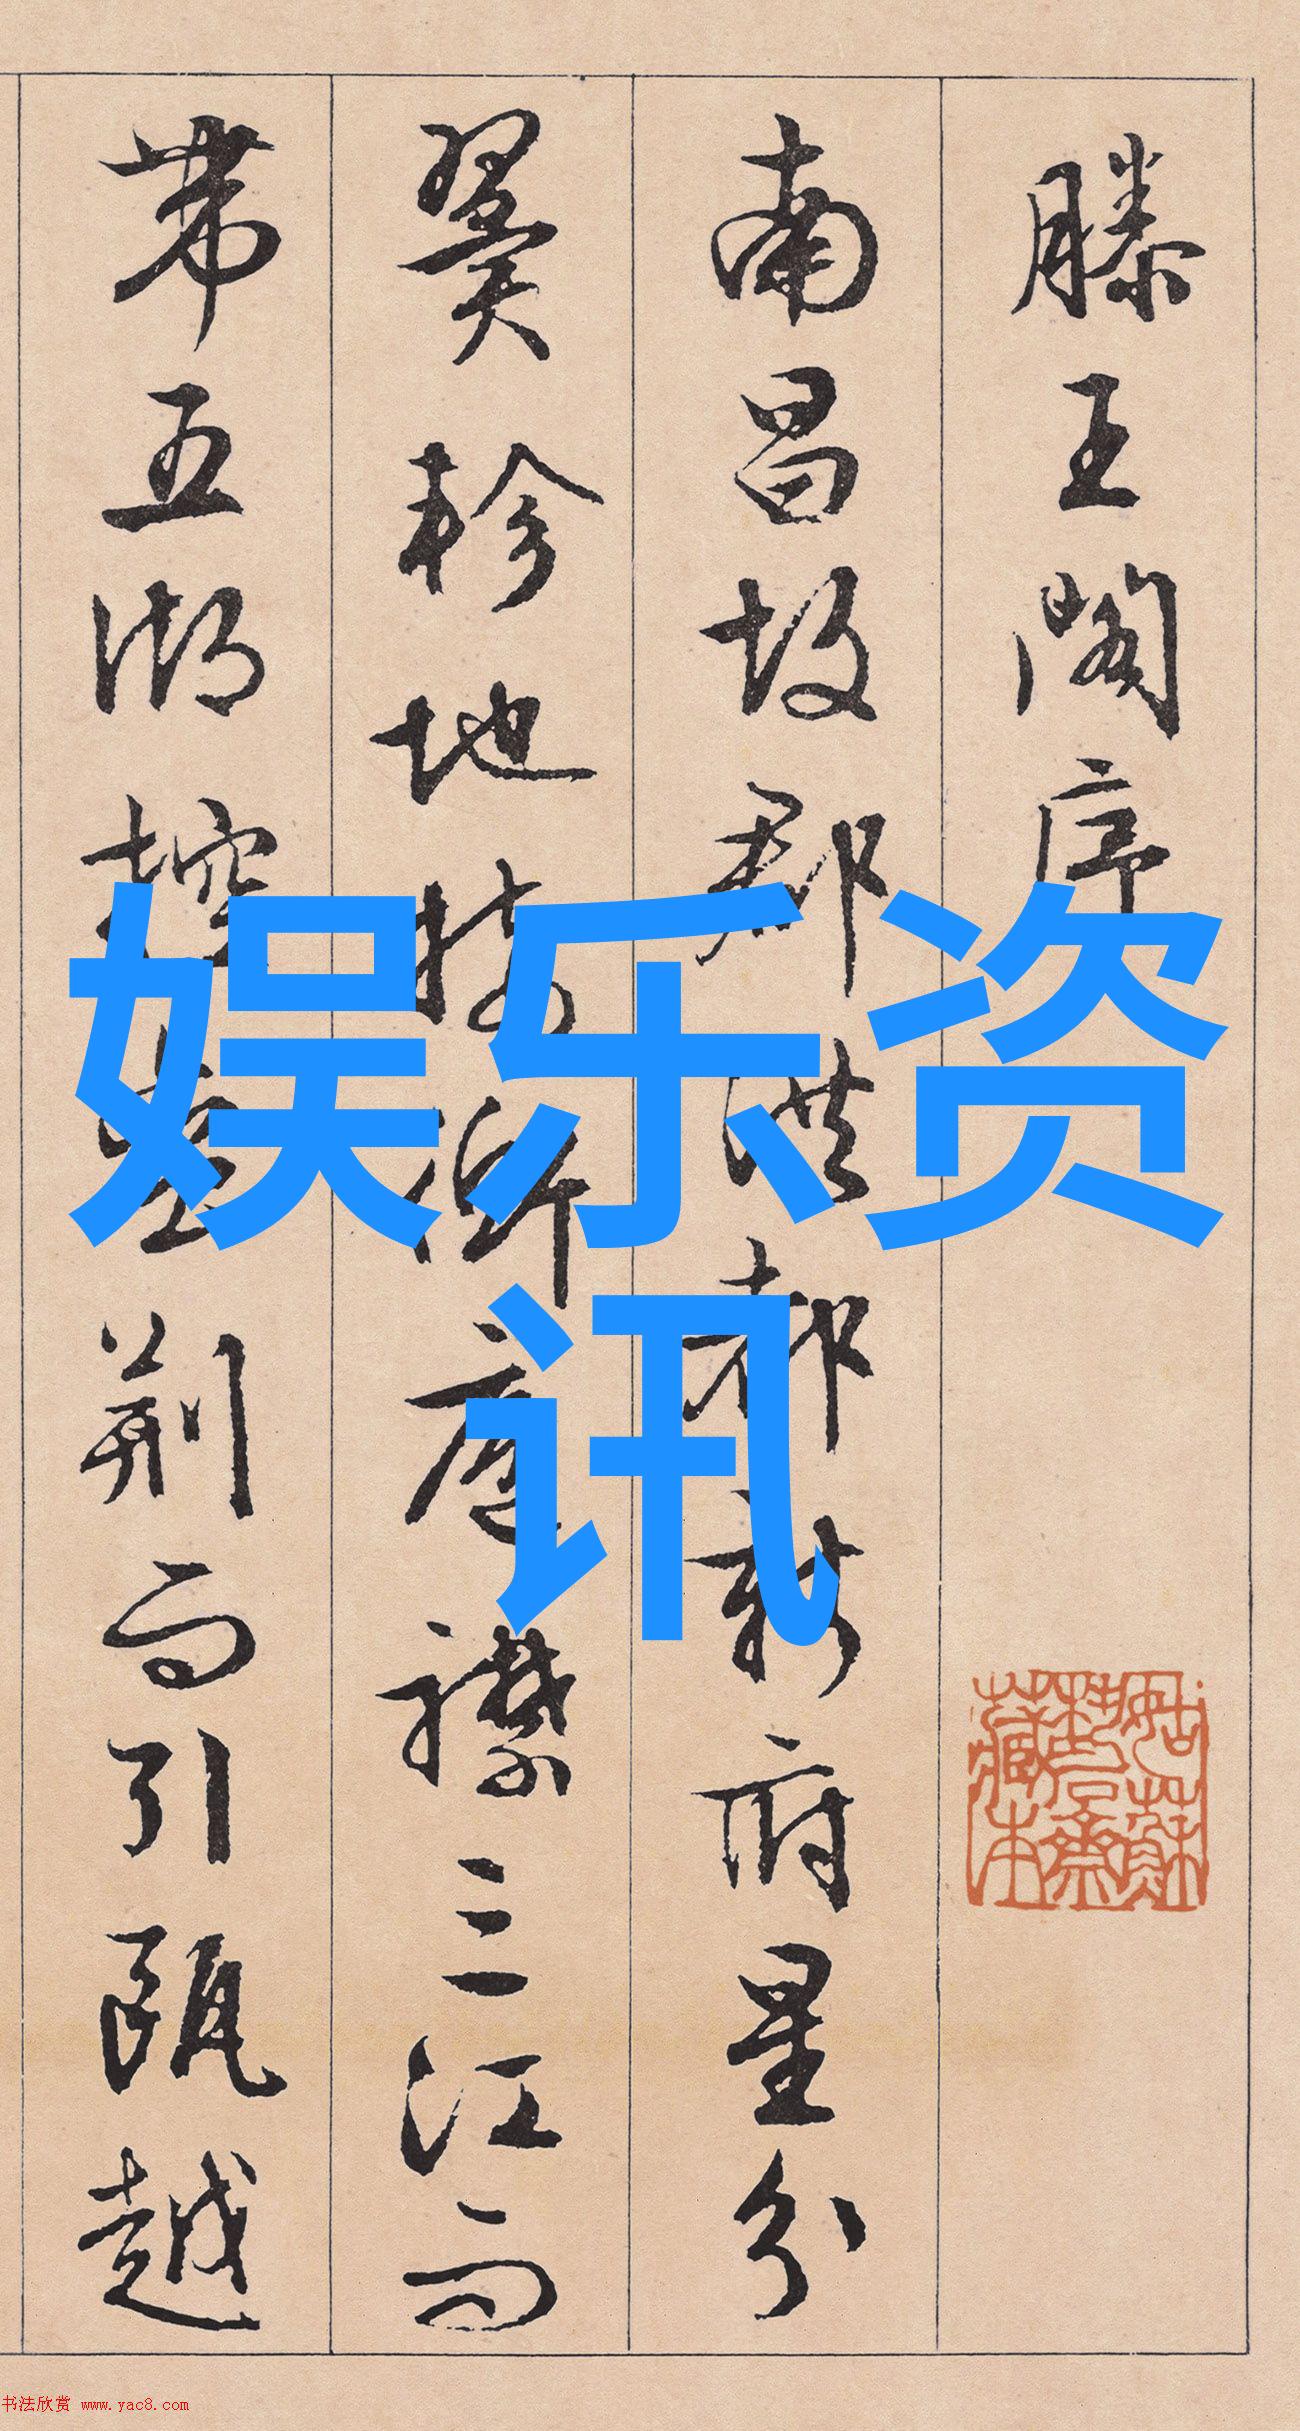 滕王閣序
南昌故郡洪都新府星分
翼軫地接衡廬襟三江而
帶五湖控蠻荊而引甌越
娱乐资
讯
书法欣赏 www.yac8.com